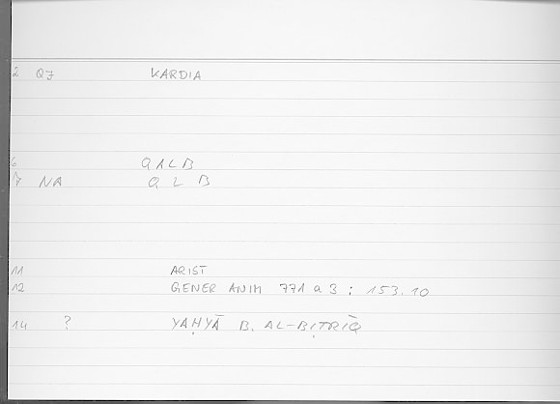 2 Q7 KARDIA
6 QALB
7 NA QLB
11 ARIST
12 GENER ANIM 771 a 3 : 153.10
14 ? YAḤYĀ B. AL-BIṬRĪQ